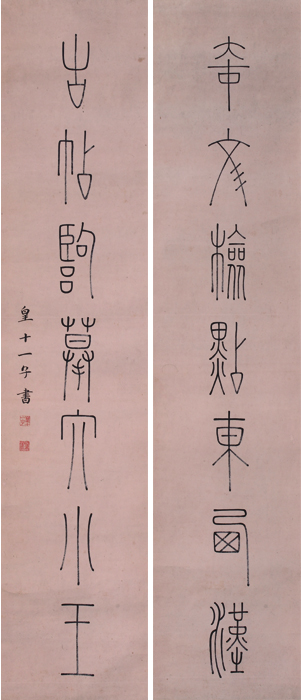 文檢點東西漢
古帖臨摹大小王
皇十一子書